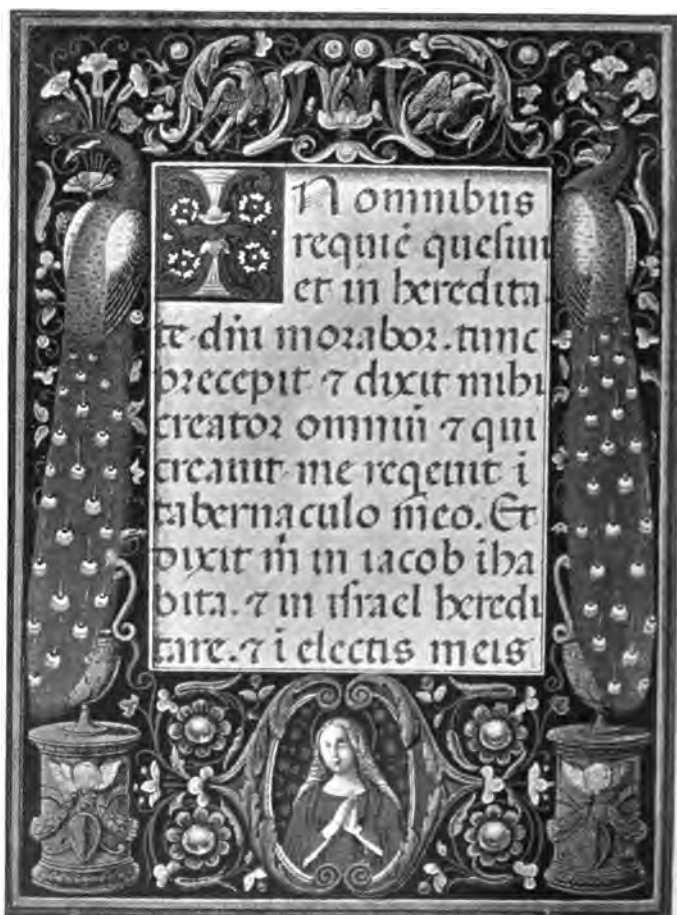 IN omnibus
requiē quesiui
et in heredita
te dn̄i morabor. tunc
precepit ⁊ dixit mihi
creator omniū ⁊ qui
creauit me reqeuit ī
tabernaculo meo. Et
dixit m̄ in iacob iha
bita. ⁊ in israel heredi
tare. ⁊ ī electis meis